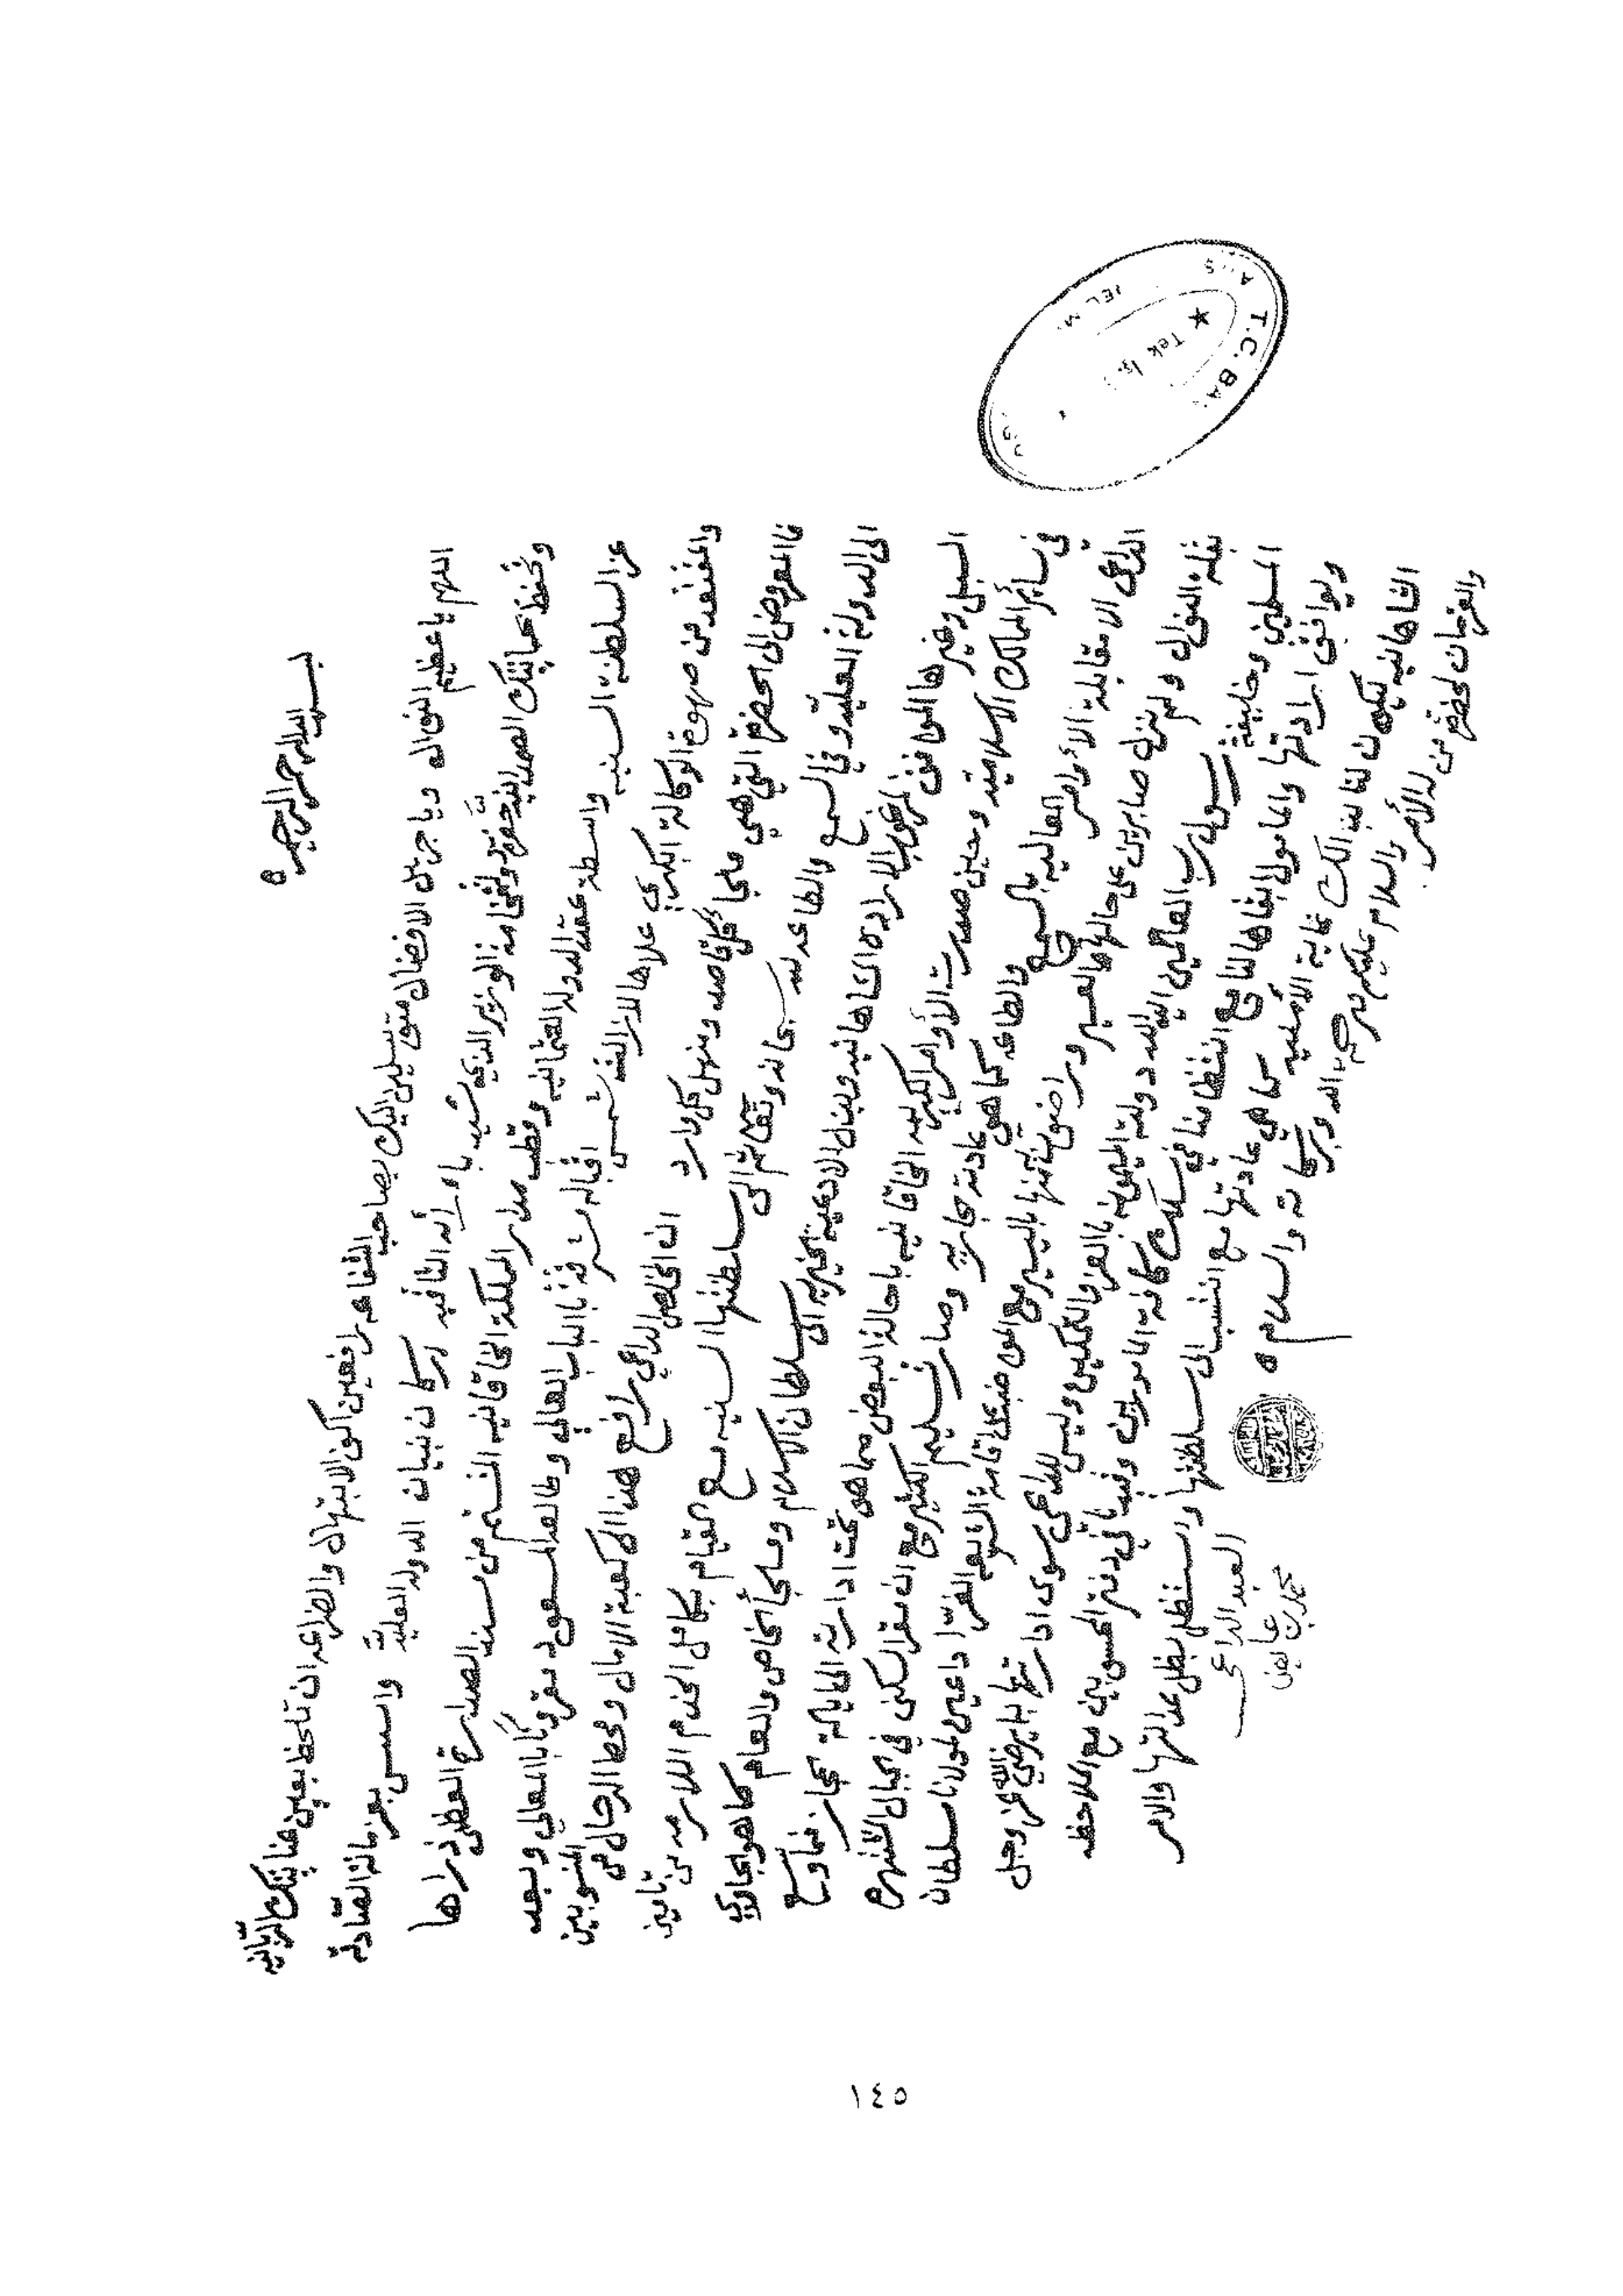 بسم الله الرحمن الرحيم
اللهم يا عظيم النوال ويا جزيل الافضال متوسلين اليك بصاحب الشفاعه رافعين اكف الابتهال والضراعه ان تلحظ بعين عنايتك الربانيه
وتحفظ بحمايتك الصمدانيه حضرة ولفخامة الوزير الذي شيد بارائه الثاقبه اركان بنيان الدوله العليه واسس بعزماته الصادقه
عز السلطنة السنيه واسطة عقد الدوله العثمانيه وقطب مدار المملكة الخاقانيه المتسنم من مسند الصدارة العظمى ذراها
والمقتعد من صهوة الوكالة الكبرى علاها لازالت شمس اقباله مشرقة بالباب العالي وطالعه المسعود مقرونًا بالمعالي وبعد
فالمعروض الى الحضرة التي هي ملجأ لكل قاصد ومنهل كل وارد ان المخلص الداعي رافع هذا الى كعبة الامال ومحط الرحال من المنسوبين
الى الدولة العليه وفي السمع والطاعه لله سبحانه وتعالى ثم الى سلطنتها السنيه مع القيام بكامل الخدم اللازمه من تامين
السبل وغيرها الموافق لمرغوب الاراده الشاهانيه وبذل الادعية الخيريه الى سلطان الاسلام وملجأ الخاص والعام كما هو الجاري
في سائر الممالك الاسلاميه وحين صدرت الأوامر الكريمه الخاقانيه باحالة البعض مما هو تحت ادارته
الداعي الا مقابلة الأوامر العاليه بالسمع والطاعه كما هو عادته جاريه وصار تسليم الكثير مع ان مقر السكنى في الجبال الشهره
بقلة النوال ولم نزل صابرين على حالتها بالعسير وراضون منها باليسير مع المواضبه على اقامة الشريعه الغرا داعين لمولانا سلطان
المسلمين وخليفة رسول رب العالمين ايد الله دولته الميمونه بالعز والتمكين وليس للداعي سوى ادارتها بما يرضي الله عز وجل
ويوافق ارادتها والمامول ابقاها لنا مع انتظامنا في سلك كافة المامورين وقيدنا في دفتر المحسوبين مع الملاحظه
الشاهانيه ليكون لنا بذالك غاية الأمنيه كما هي عادتها مع المنتسب الى سلطنتها واستظل بظل عدالتها والامر
والفرمان لحضرة من له الأمر والسلام عليكم ورحمة الله وبركاته والسلام
العبد الداعي
محمد بن عايض
T.C. BA
١٤٥